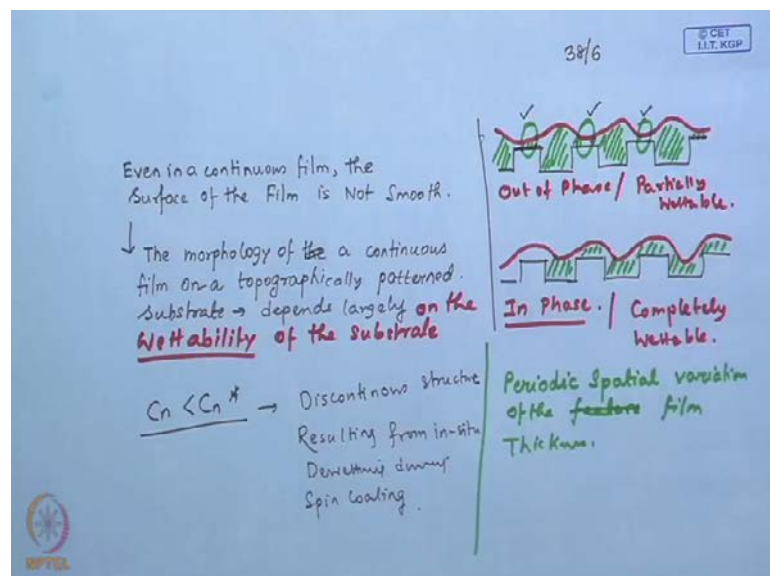 38/6
© CET
I.I.T. KGP
Even in a continuous film, the
Surface of the Film is Not Smooth.
The morphology of a continuous
film on a topographically patterned
substrate → depends largely on the
Wettability of the substrate
Cn < Cn* → Discontinous structure
Resulting from in-situ
Dewetting during
Spin Coating.
Out of Phase / Partially
Wettable.
In Phase. / Completely
Wettable.
Periodic Spatial variation
of the film
Thickness.
NPTEL